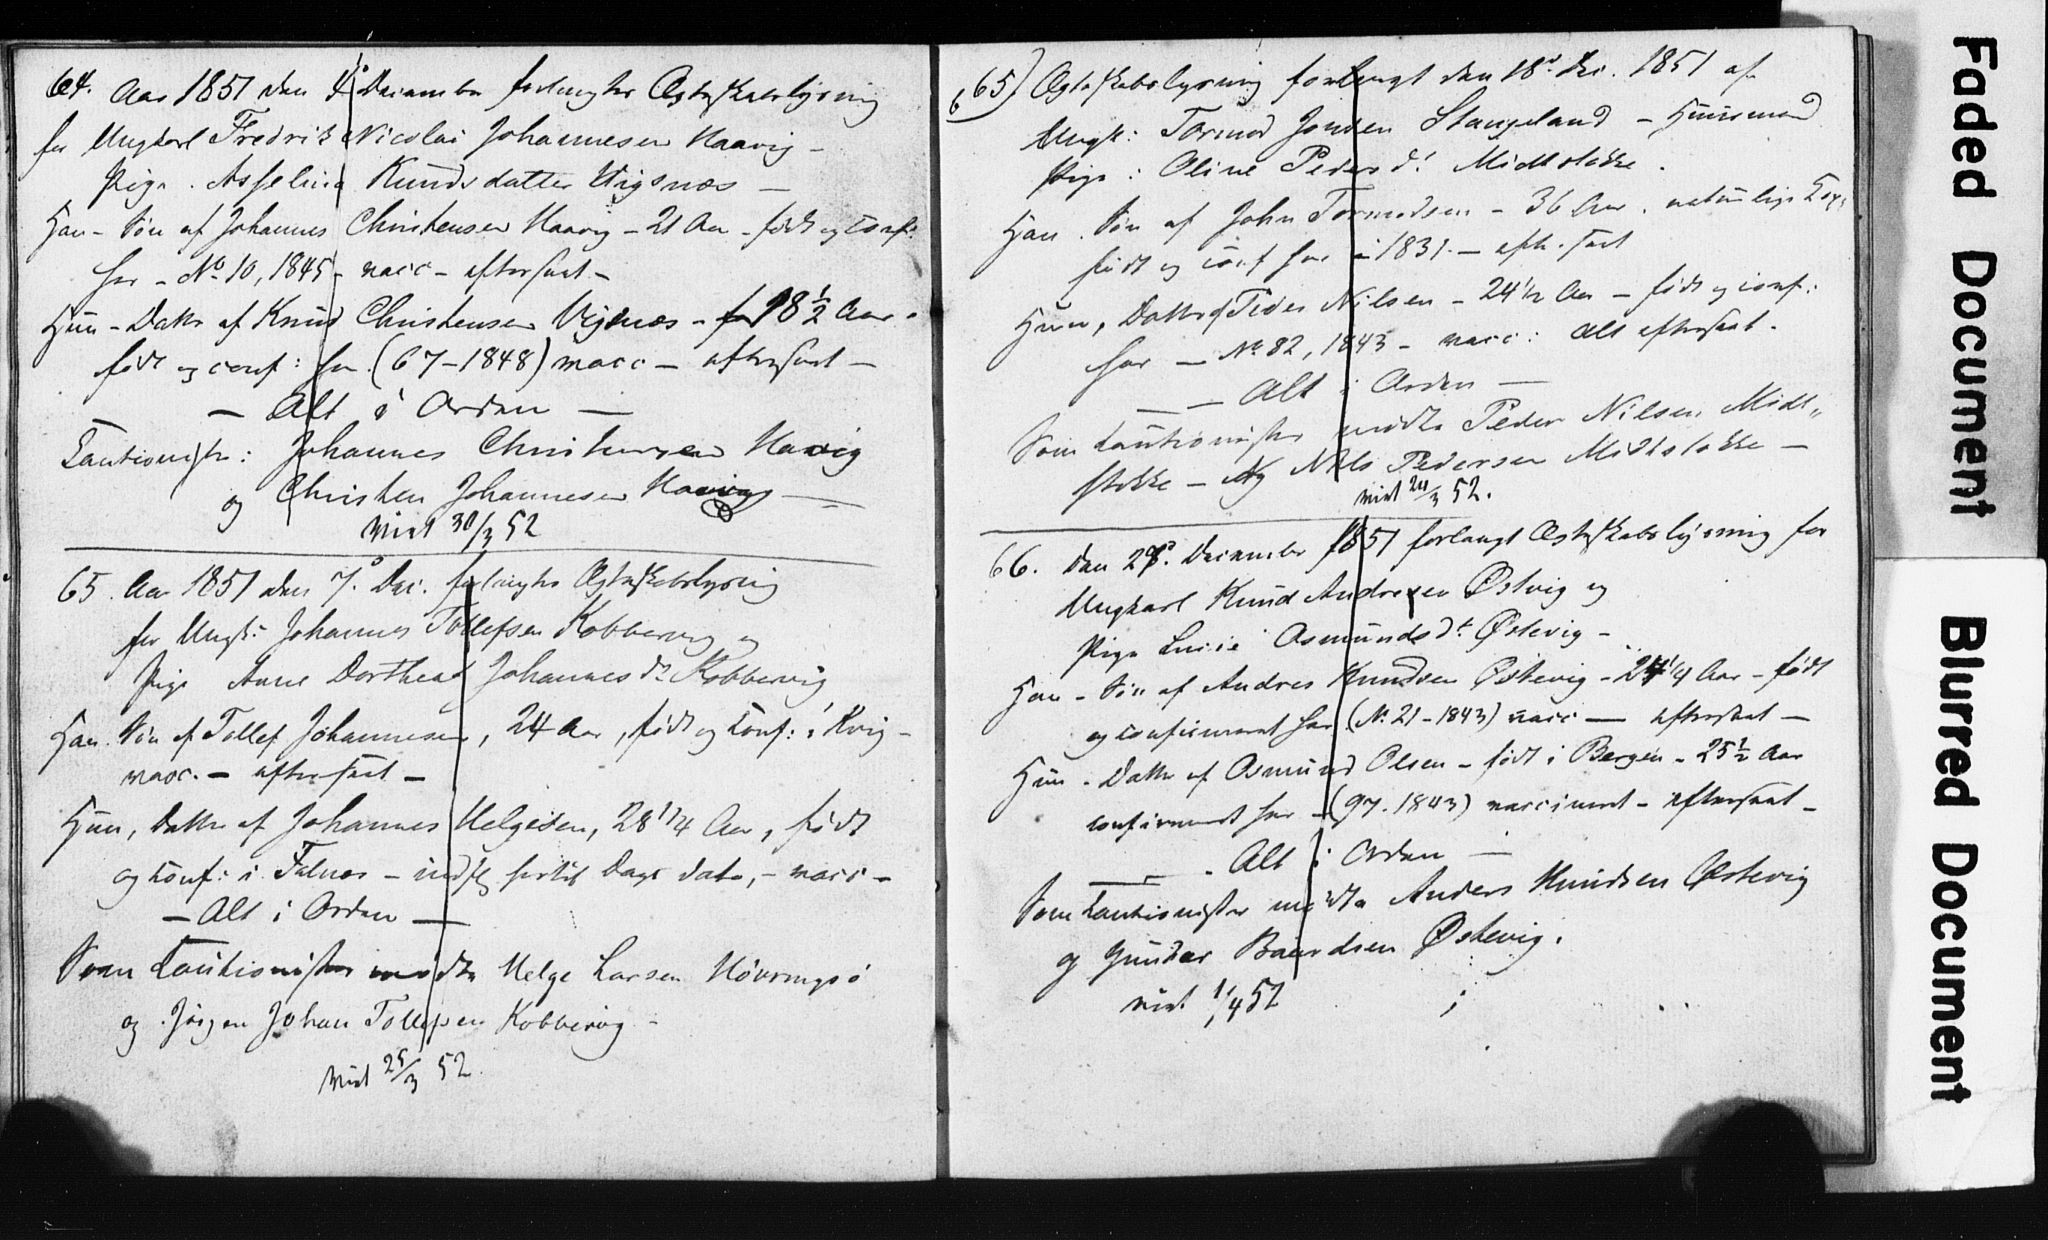 64. Aar 1851 den 4d December forlangtes Ægteskabslysning
for Ungkarl Fredrik Nicolai Johannesen Haavig –
Pige . Asseline Knudsdatter Vigsnæs –
Han – Søn af Johannes Christensen Haavig – 21 Aar – født og conf:
her – No 10, 1845 – vacc – attesteret –
Hun – Datter af Knud Christensen Vigsnæs – 18 1/2 Aar .
født og conf: her (67–1848) vacc – attesteret –
– Alt i Orden –
Cautionister: Johannes Christensen Haavig
og Christen Johannesen Haavig –
Viet 30/3 52
65. Aar 1851 den 7d Dec. forlangtes Ægteskabslysning
for Ungk: Johannes Tollefsen Kobbervig og
Pige Anne Dorthea Johannesdt Kobbervig
Han. Søn af Tollef Johannesen, 24 Aar, født og conf: i Kvig –
vacc. – attesteret –
Hun, Datter af Johannes Helgesen, 28 1/4 Aar, født
og conf: i Falnæs – hertil Dags dato, – vacc –
– Alt i Orden –
Som Cautionister mødte Helge Larsen Høvringsø
og Jørgen Johan Tollefsen Kobbervig –
Viet 25/3 52.
6
65) Ægteskabslysning forlangt den 18d Dec. 1851 af
Ungk: Tormod Jonsen Stangeland – Huusmand
Pige : Oline Pedersd: Midtstokke .
Han . Søn af John Tormodsen – 36 Aar . naturlige
født og conf her i 1831. – attesteret
Hun, Datter af Peder Nilsen – 24 1/2 Aar – født og conf:
her – No 82, 1843 – vacc: alt attesteret .
– – Alt i Orden –
Som Cautionister mødte Peder Nilsen Midt„
stokke – og Nils Pedersen Midtstokke –
Viet 24/3 52.
66. Den 29d December 1851 forlangt Ægteskabslysning for
Ungkarl Knud Andresen Østvig og
Pige Lucie Asmundsdt Østevig –
Han – Søn af Andres Knudsen Østevig – 24 1/4 Aar – født
og confirmeret her (No 21–1843) vacc – attesteret –
Hun . Datter af Osmund Olsen – født i Bergen – 25 1/2 Aar
confirmeret her – (97. 1843) vaccineret – attesteret –
– . Alt i Orden –
Som Cautionister mødte Anders Knudsen Østevig
og Gunder Baardsen Østevig.
viet 1/4 52
Faded Document
Blurred Document